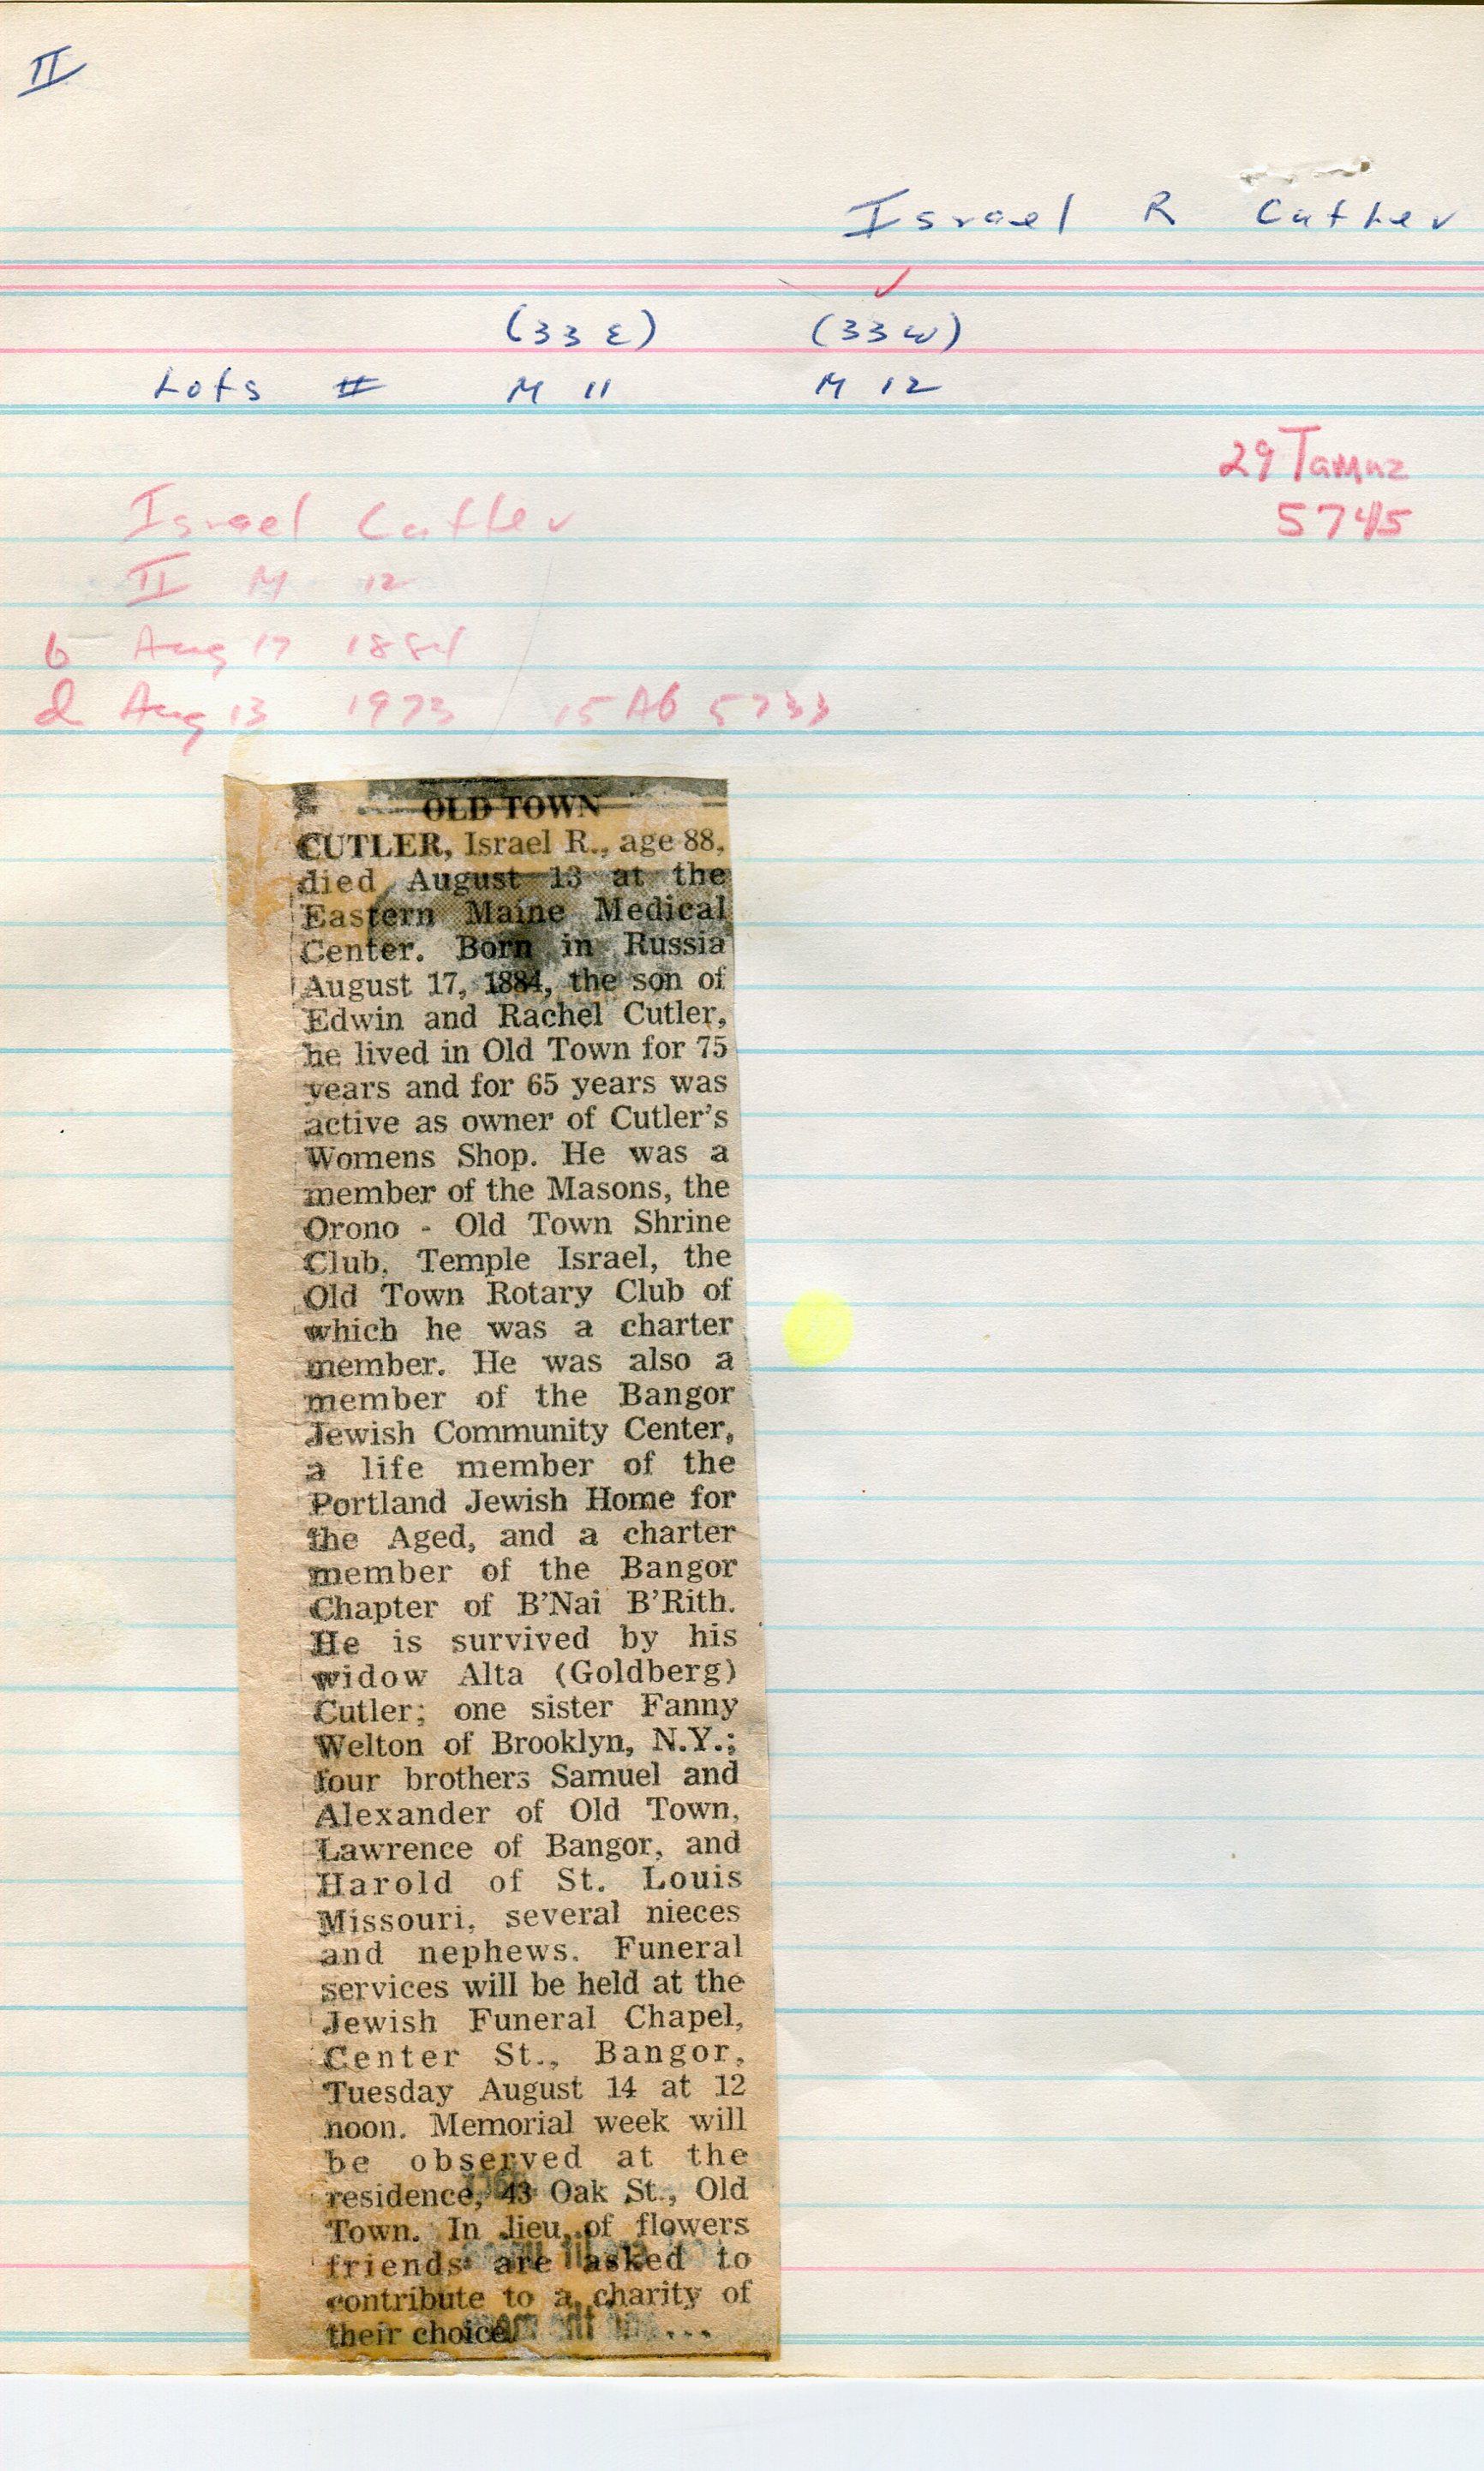 II
Israel R Cutler
(33 E) (33 W)
Lots # M 11 M 12
29 Tamuz
5745
Israel Cutler
II M 12
b Aug 17 1884
d Aug 13 1973 15 Ab 5733
OLD TOWN
CUTLER, Israel R., age 88,
died August 13 at the
Eastern Maine Medical
Center. Born in Russia
August 17, 1884, the son of
Edwin and Rachel Cutler,
he lived in Old Town for 75
years and for 65 years was
active as owner of Cutler's
Womens Shop. He was a
member of the Masons, the
Orono - Old Town Shrine
Club, Temple Israel, the
Old Town Rotary Club of
which he was a charter
member. He was also a
member of the Bangor
Jewish Community Center,
a life member of the
Portland Jewish Home for
the Aged, and a charter
member of the Bangor
Chapter of B'Nai B'Rith.
He is survived by his
widow Alta (Goldberg)
Cutler; one sister Fanny
Welton of Brooklyn, N.Y.;
four brothers Samuel and
Alexander of Old Town,
Lawrence of Bangor, and
Harold of St. Louis
Missouri, several nieces
and nephews. Funeral
services will be held at the
Jewish Funeral Chapel,
Center St., Bangor,
Tuesday August 14 at 12
noon. Memorial week will
be observed at the
residence, 43 Oak St., Old
Town. In lieu of flowers
friends are asked to
contribute to a charity of
their choice.